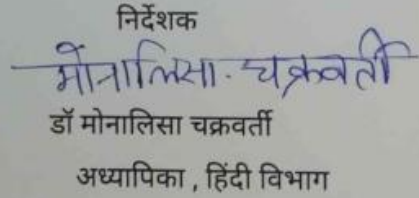 निर्देशक
मोनालिसा. चक्रवर्ती
डॉ मोनालिसा चक्रवर्ती
अध्यापिका , हिंदी विभाग